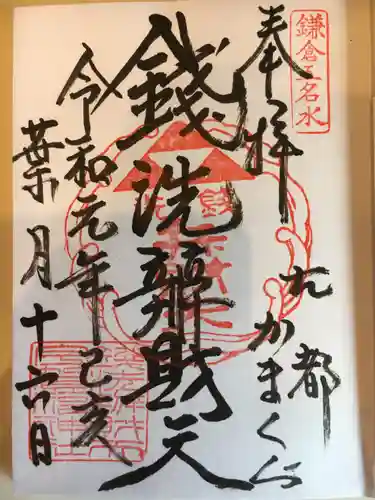 鎌倉五名水
奉拝
古都
かまくら
錢洗辨財天
令和元年己亥
葉月十六日